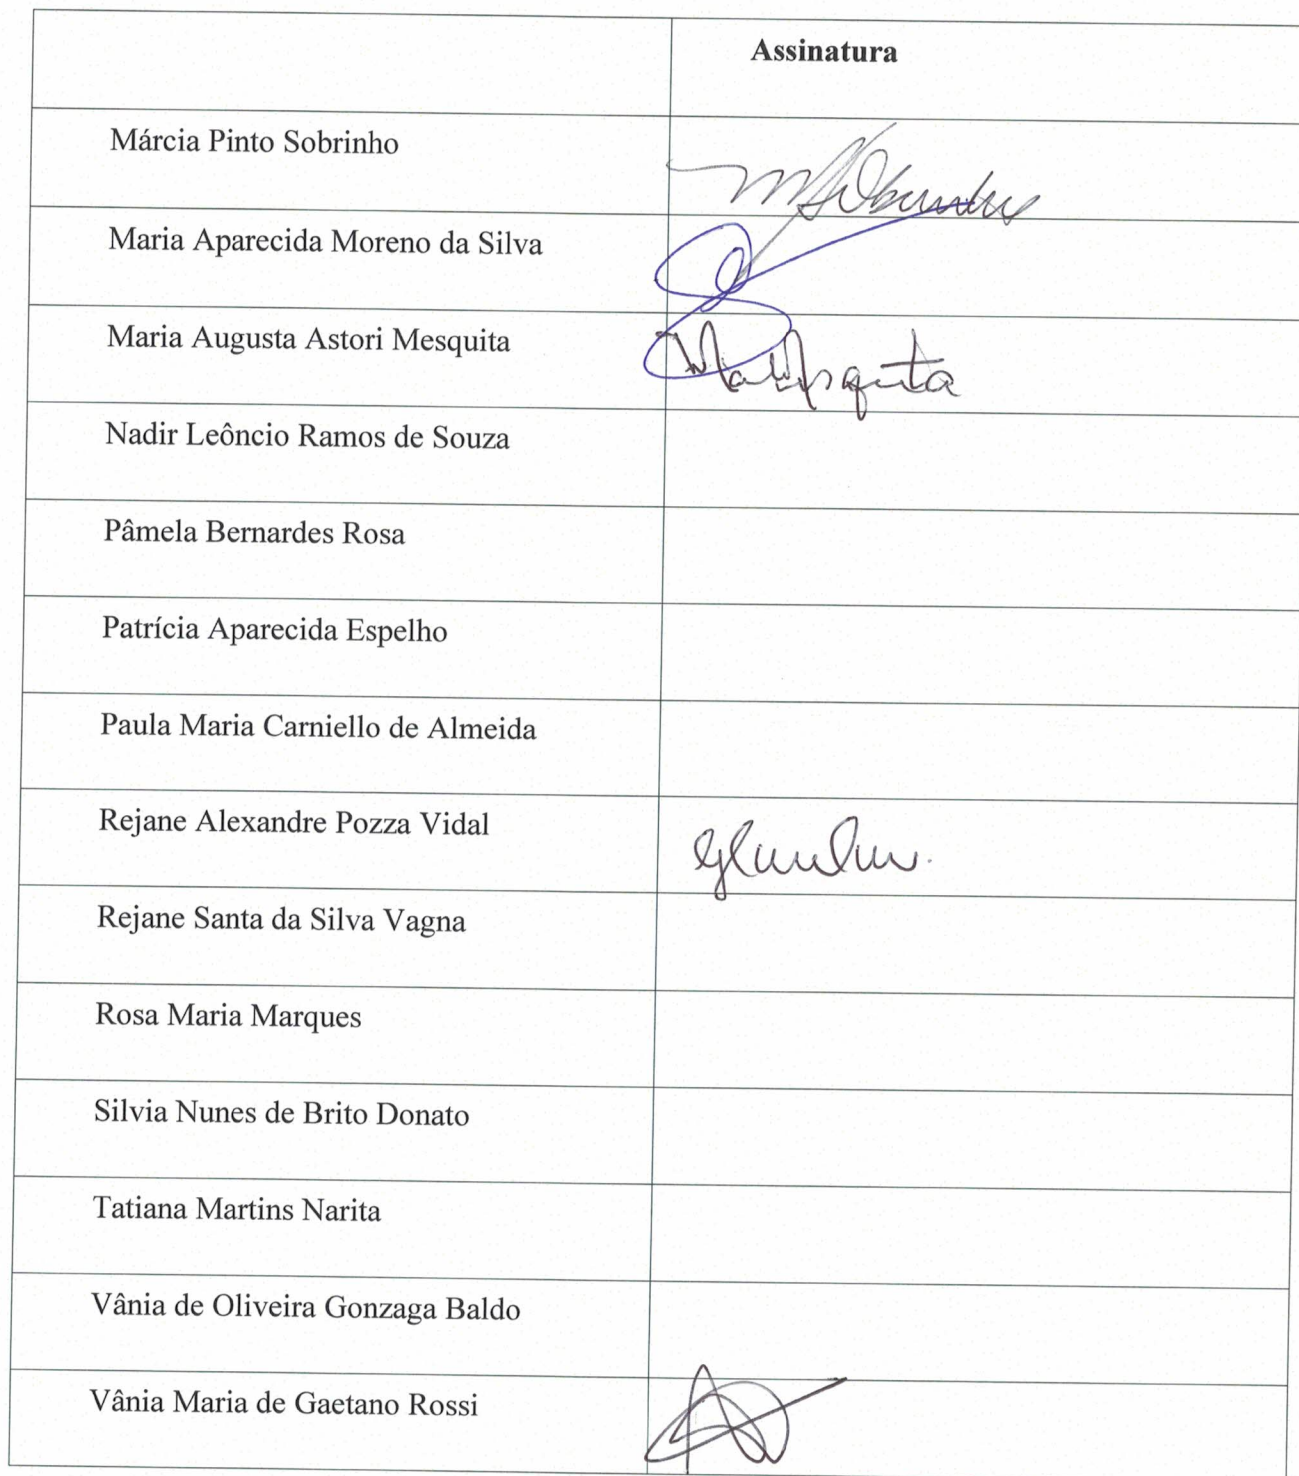 Assinatura
Márcia Pinto Sobrinho
Maria Aparecida Moreno da Silva
Maria Augusta Astori Mesquita
Nadir Leôncio Ramos de Souza
Pâmela Bernardes Rosa
Patrícia Aparecida Espelho
Paula Maria Carniello de Almeida
Rejane Alexandre Pozza Vidal
Rejane Santa da Silva Vagna
Rosa Maria Marques
Silvia Nunes de Brito Donato
Tatiana Martins Narita
Vânia de Oliveira Gonzaga Baldo
Vânia Maria de Gaetano Rossi